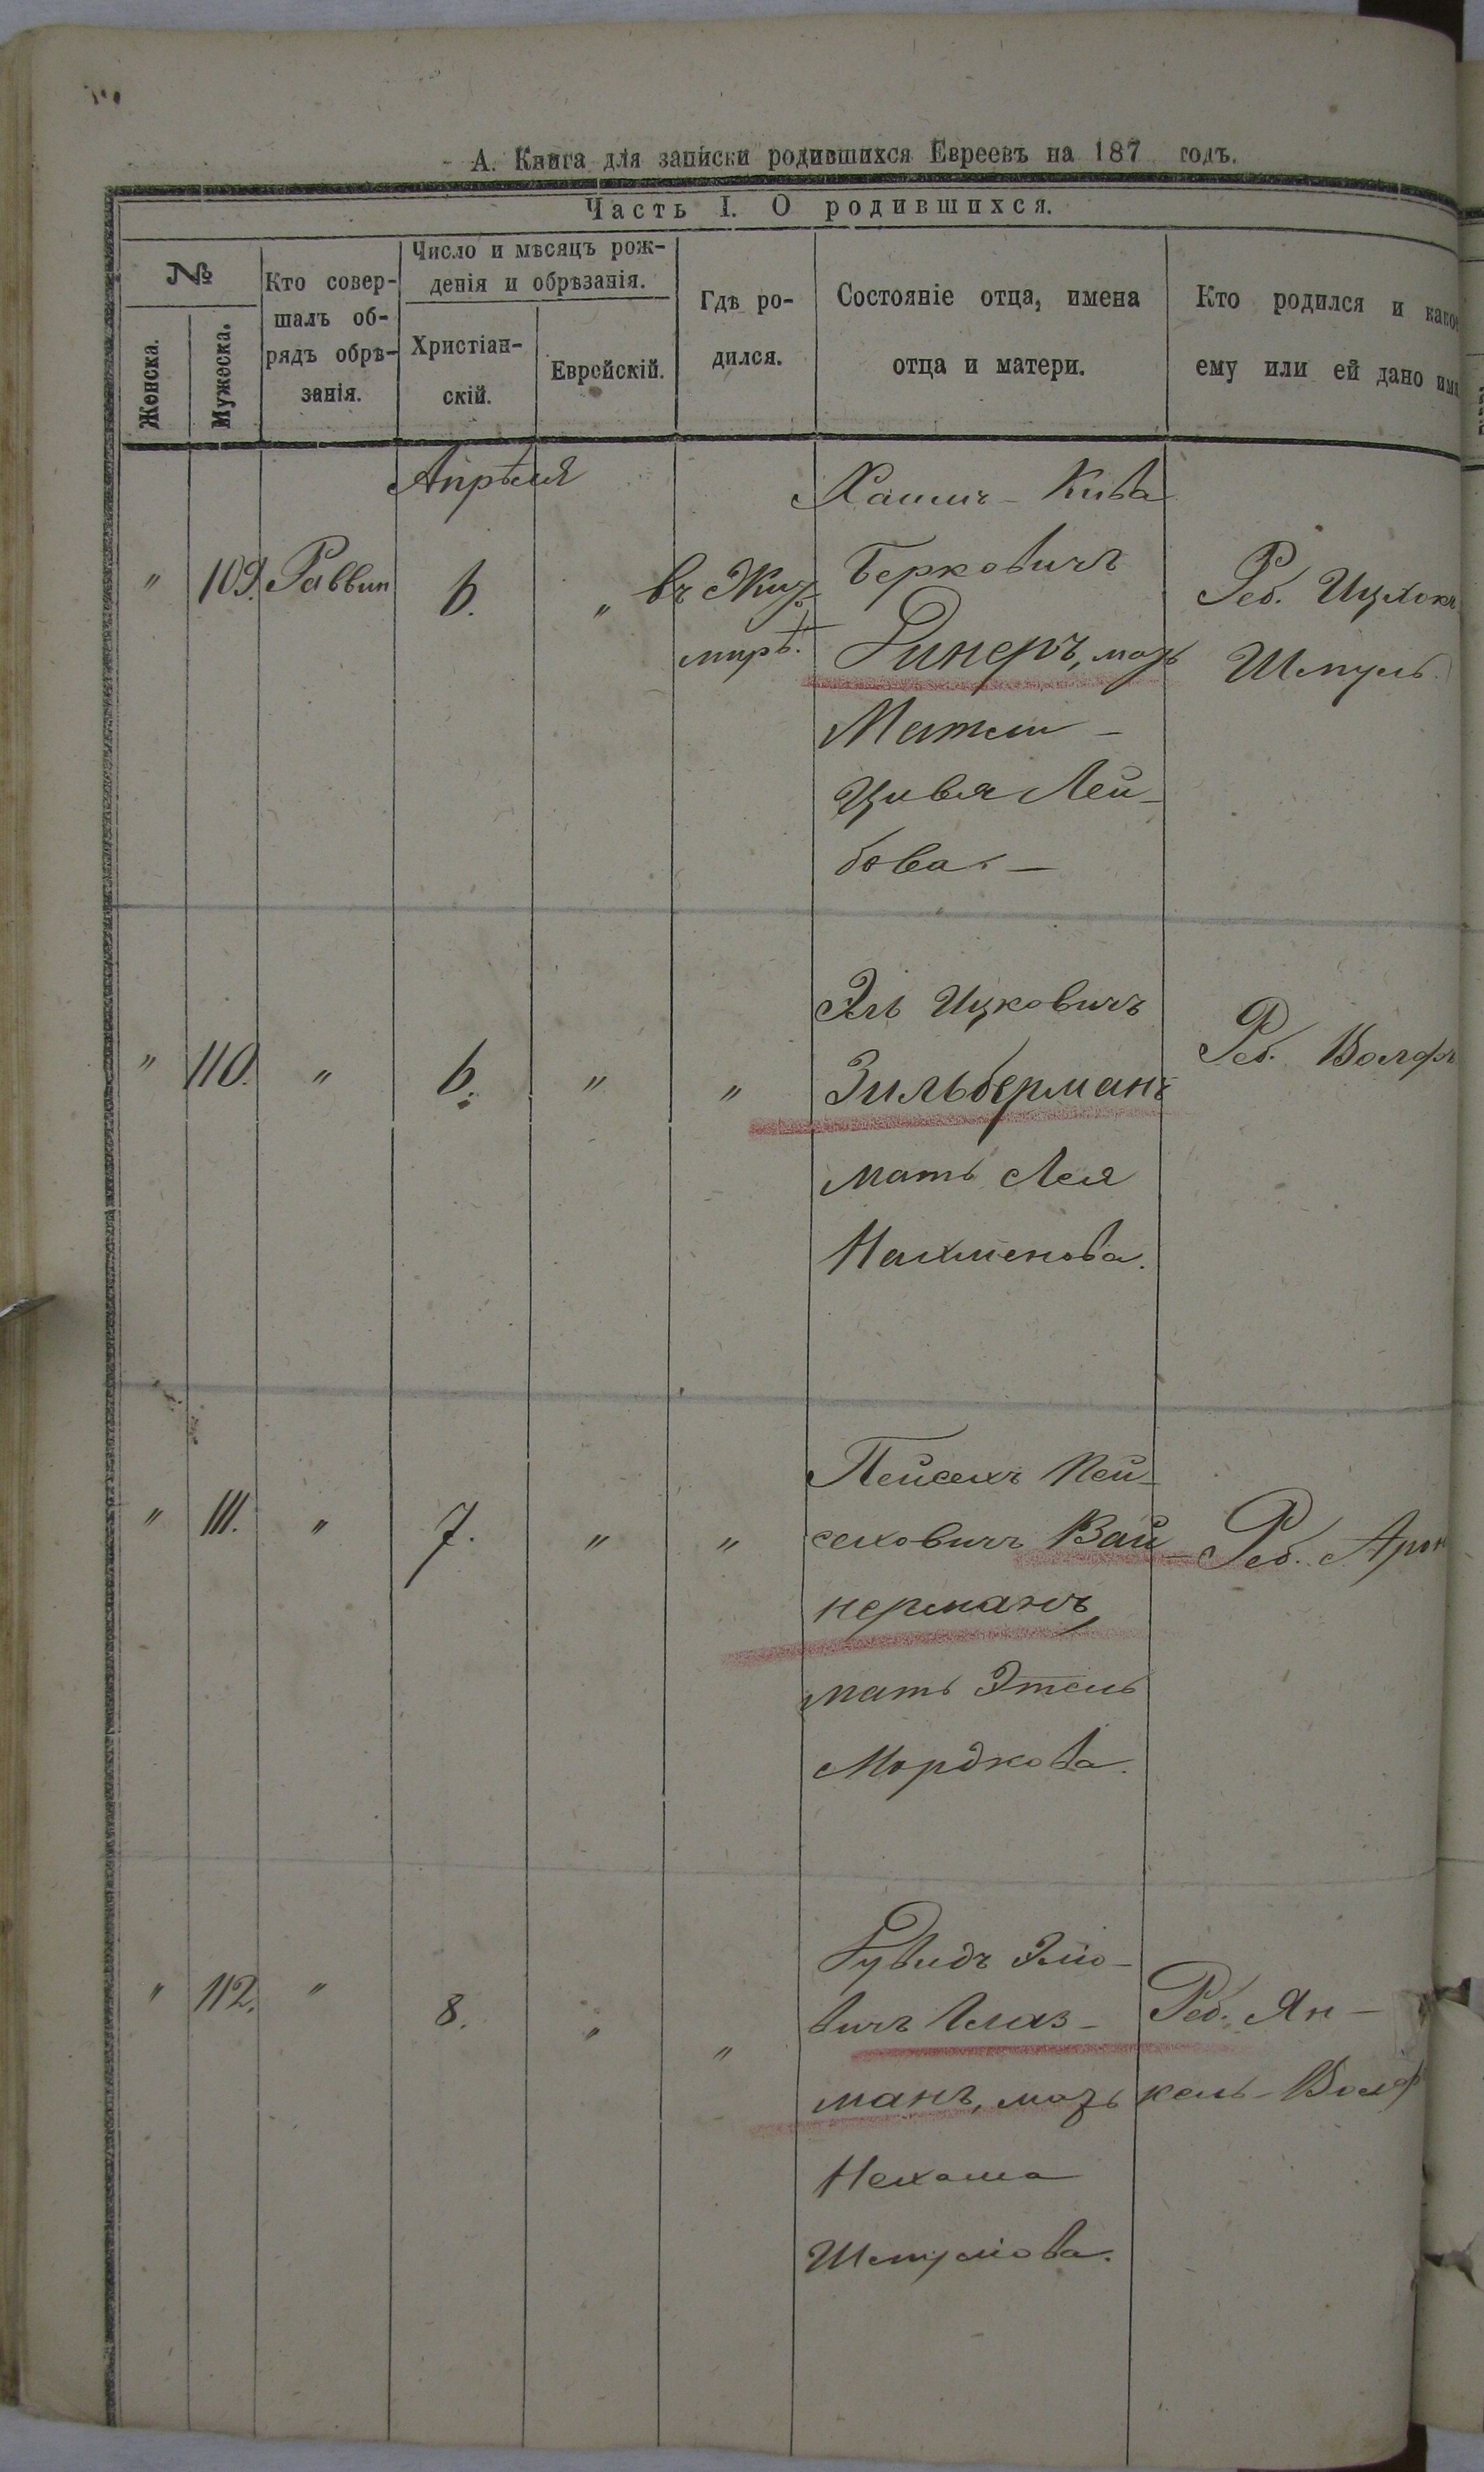 А. Книга для записки родившихся Евреевъ на 187 годъ.
Часть I. О родившихся.
№
Женска.
Мужеска.
Кто совер-
шалъ об-
рядъ обрѣ-
занія.
Число и мѣсяцъ рож-
денія и обрѣзанія.
Христіан-
скій.
Еврейскій.
Гдѣ ро-
дился.
Состояніе отца, имена
отца и матери.
Кто родился и какое
ему или ей дано имя
Апрѣля
" 109. Раввин 6. "
въ Жит
мирѣ.
Хаимъ - Кива
Берковичъ
Динеръ, мать
Цивя Лей-
бова -
Реб. Ицхокъ
Шмуль.
" 110. " 6. " "
Эль Ицковичъ
Зильберманъ
мать Лея
Нахменова.
Реб. Волфъ
" 111. " 7. " "
Пейсехъ Пей-
сеховичъ Вай-
нерманъ,
мать Этель
Мордкова.
Реб. Арон
" 112. " 8. " "
Дувидъ Эліо-
вичъ Глаз-
манъ, мать
Нехама
Шмуліова.
Реб. Ян-
кель-Волф